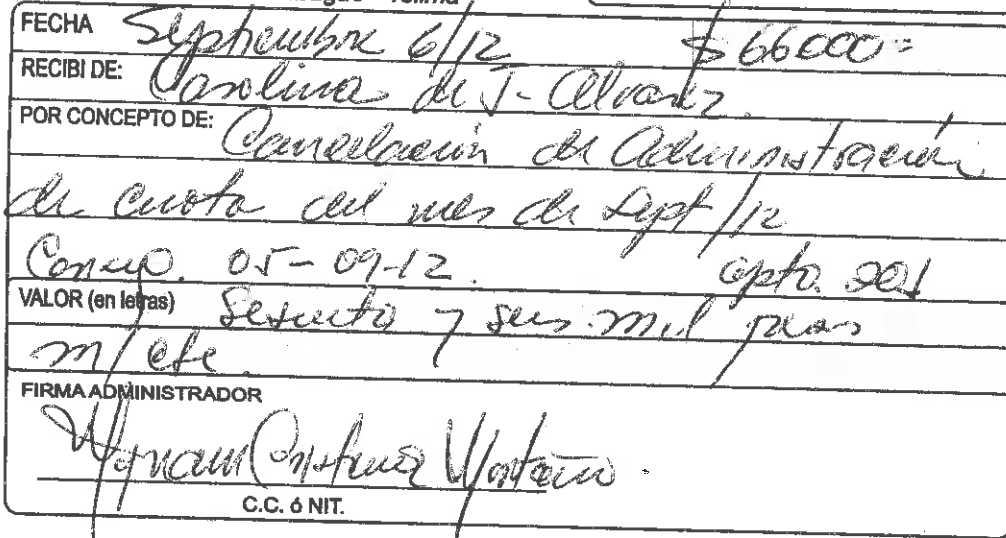 FECHA Septiembre 6/12 $66000=
RECIBI DE: Carolina de J- Alvarez.
POR CONCEPTO DE: Cancelación de Administración
de cuota del mes de Sept/12
05-09-12. apto. 201
VALOR (en letras) Sesenta y seis mil pesos
m/cte.
FIRMA ADMINISTRADOR
C.C. ó NIT.